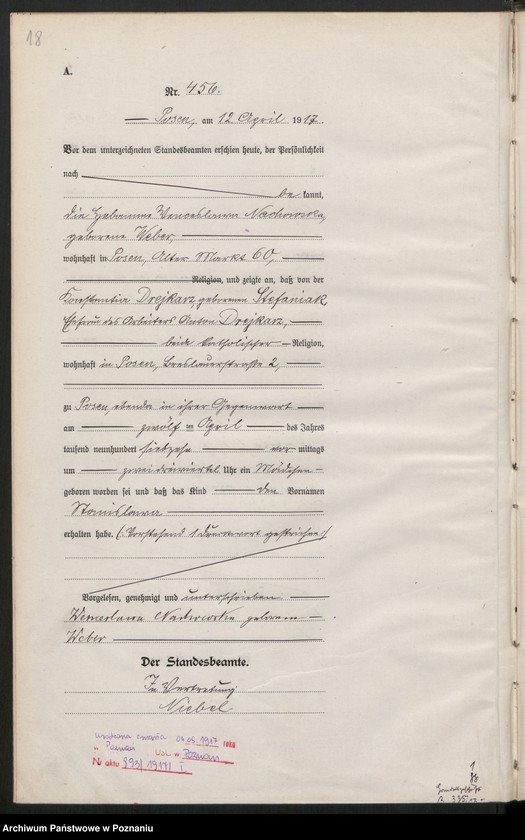 18
A.
Nr. 456.
Posen, am 12. April 1917.
Vor dem unterzeichneten Standesbeamten erschien heute, der Persönlichkeit
nach
be kannt,
die Hebamme Wenceslawa
geborene Weber,
wohnhaft in Posen, Alter Markt 60,
Religion, und zeigte an, daß von der
Konstantia Drejkarz, geborenen Stefaniak,
Ehefrau des Arbeiters Anton Drejkarz,
beide katholischer Religion,
wohnhaft in Posen, Breslauerstraße 2,
zu Posen, ebenda in ihrer Gegenwart
am zwölf ten April des Jahres
tausend neunhundert siebzehn vor mittags
um zwei dreiviertel Uhr ein Mädchen
geboren worden sei und daß das Kind den Vornamen
Stanislawa
erhalten habe. (Vorstehend 1 Druckwort gestrichen.)
Vorgelesen, genehmigt und unterschrieben
geborene
Weber
Der Standesbeamte.
In Vertretung
Niebel
1917 roku
w Poznań USC w Poznaniu
Nr aktu 893/1917/ I
Archiwum Państwowe w Poznaniu